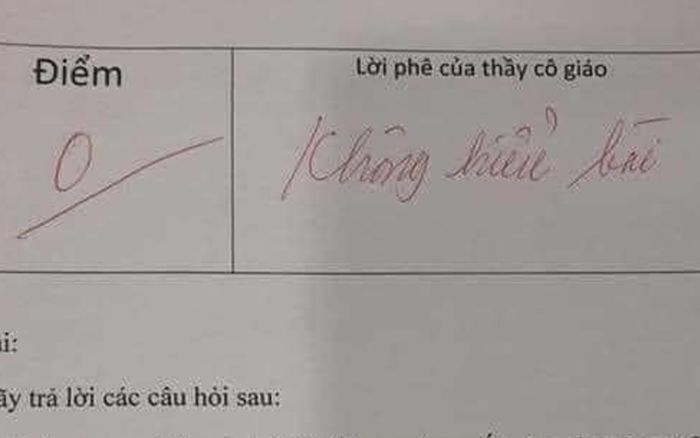 Điểm
Lời phê của thầy cô giáo
0
Không hiểu bài
i:
ãy trả lời các câu hỏi sau: